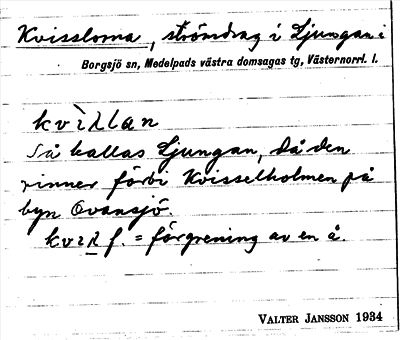 Kvisslorna, strömdrag i Ljungan i
Borgsjö sn, Medelpads västra domsagas tg, Västernorrl. l.
kvìλlan
Så kallas Ljungan, då den
rinner förbi Kvisselholmen på
byn Ovansjö.
f. = förgrening av en å.
VALTER JANSSON 1934